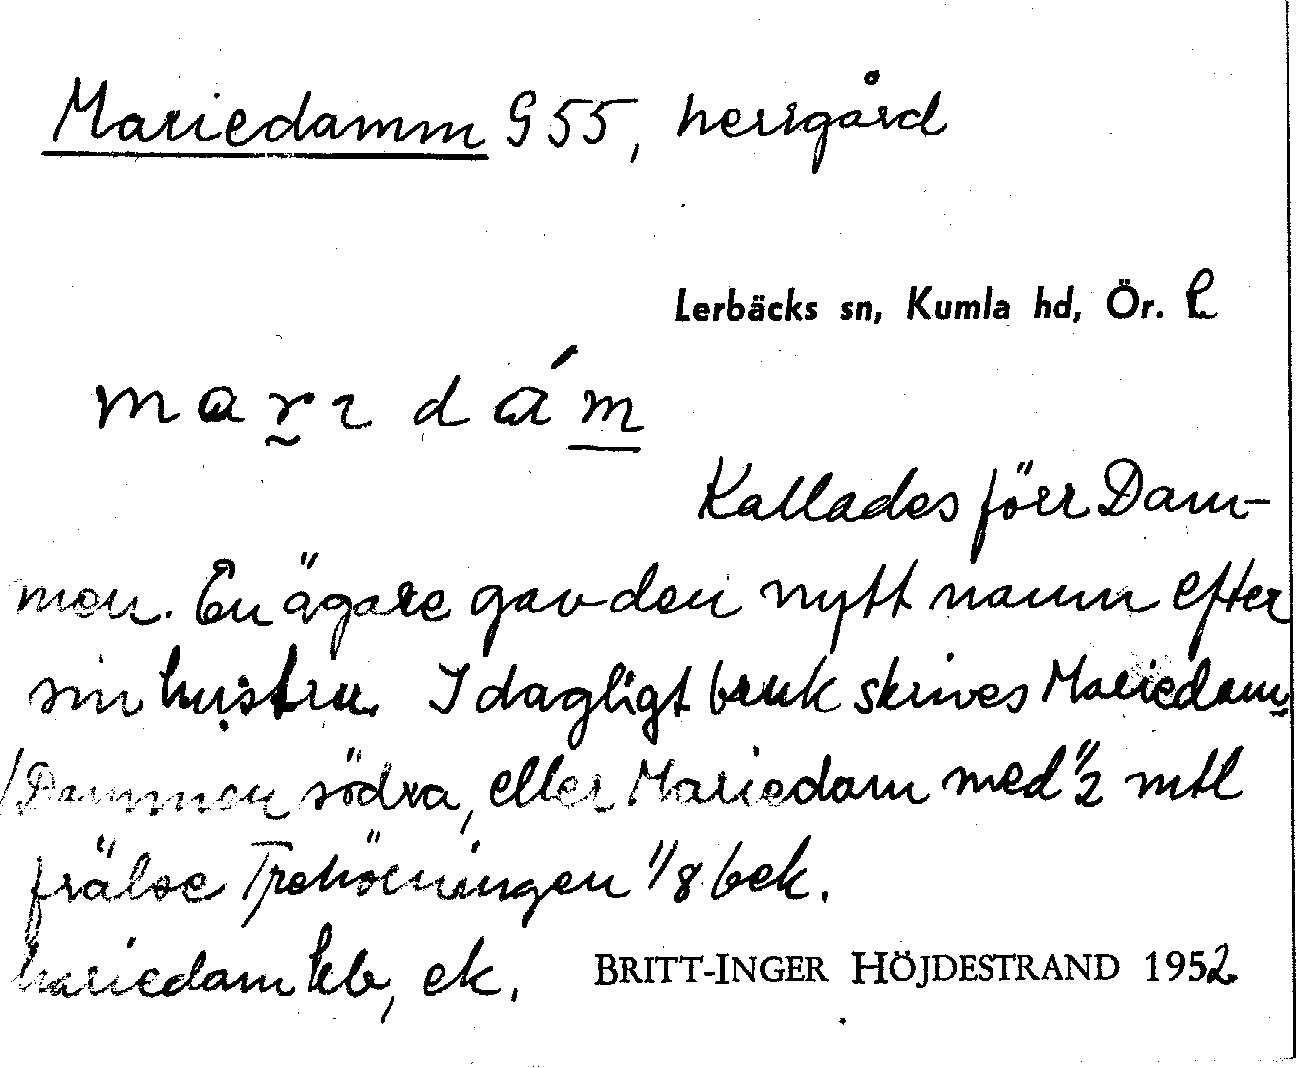 Mariedamm G 55, herrgård
Lerbäcks sn, Kumla hd, Ör. L
marɩ dám
Kallades förr Dam-
men. En ägare gav den nytt namn efter
sin hustru. I dagligt bruk skrives Mariedam
/Dammen södra, eller Mariedam med 1/2 mtl
frälse Trehörningen 1/8 bek.
Mariedam kb, ek.
BRITT-INGER HÖJDESTRAND 1952